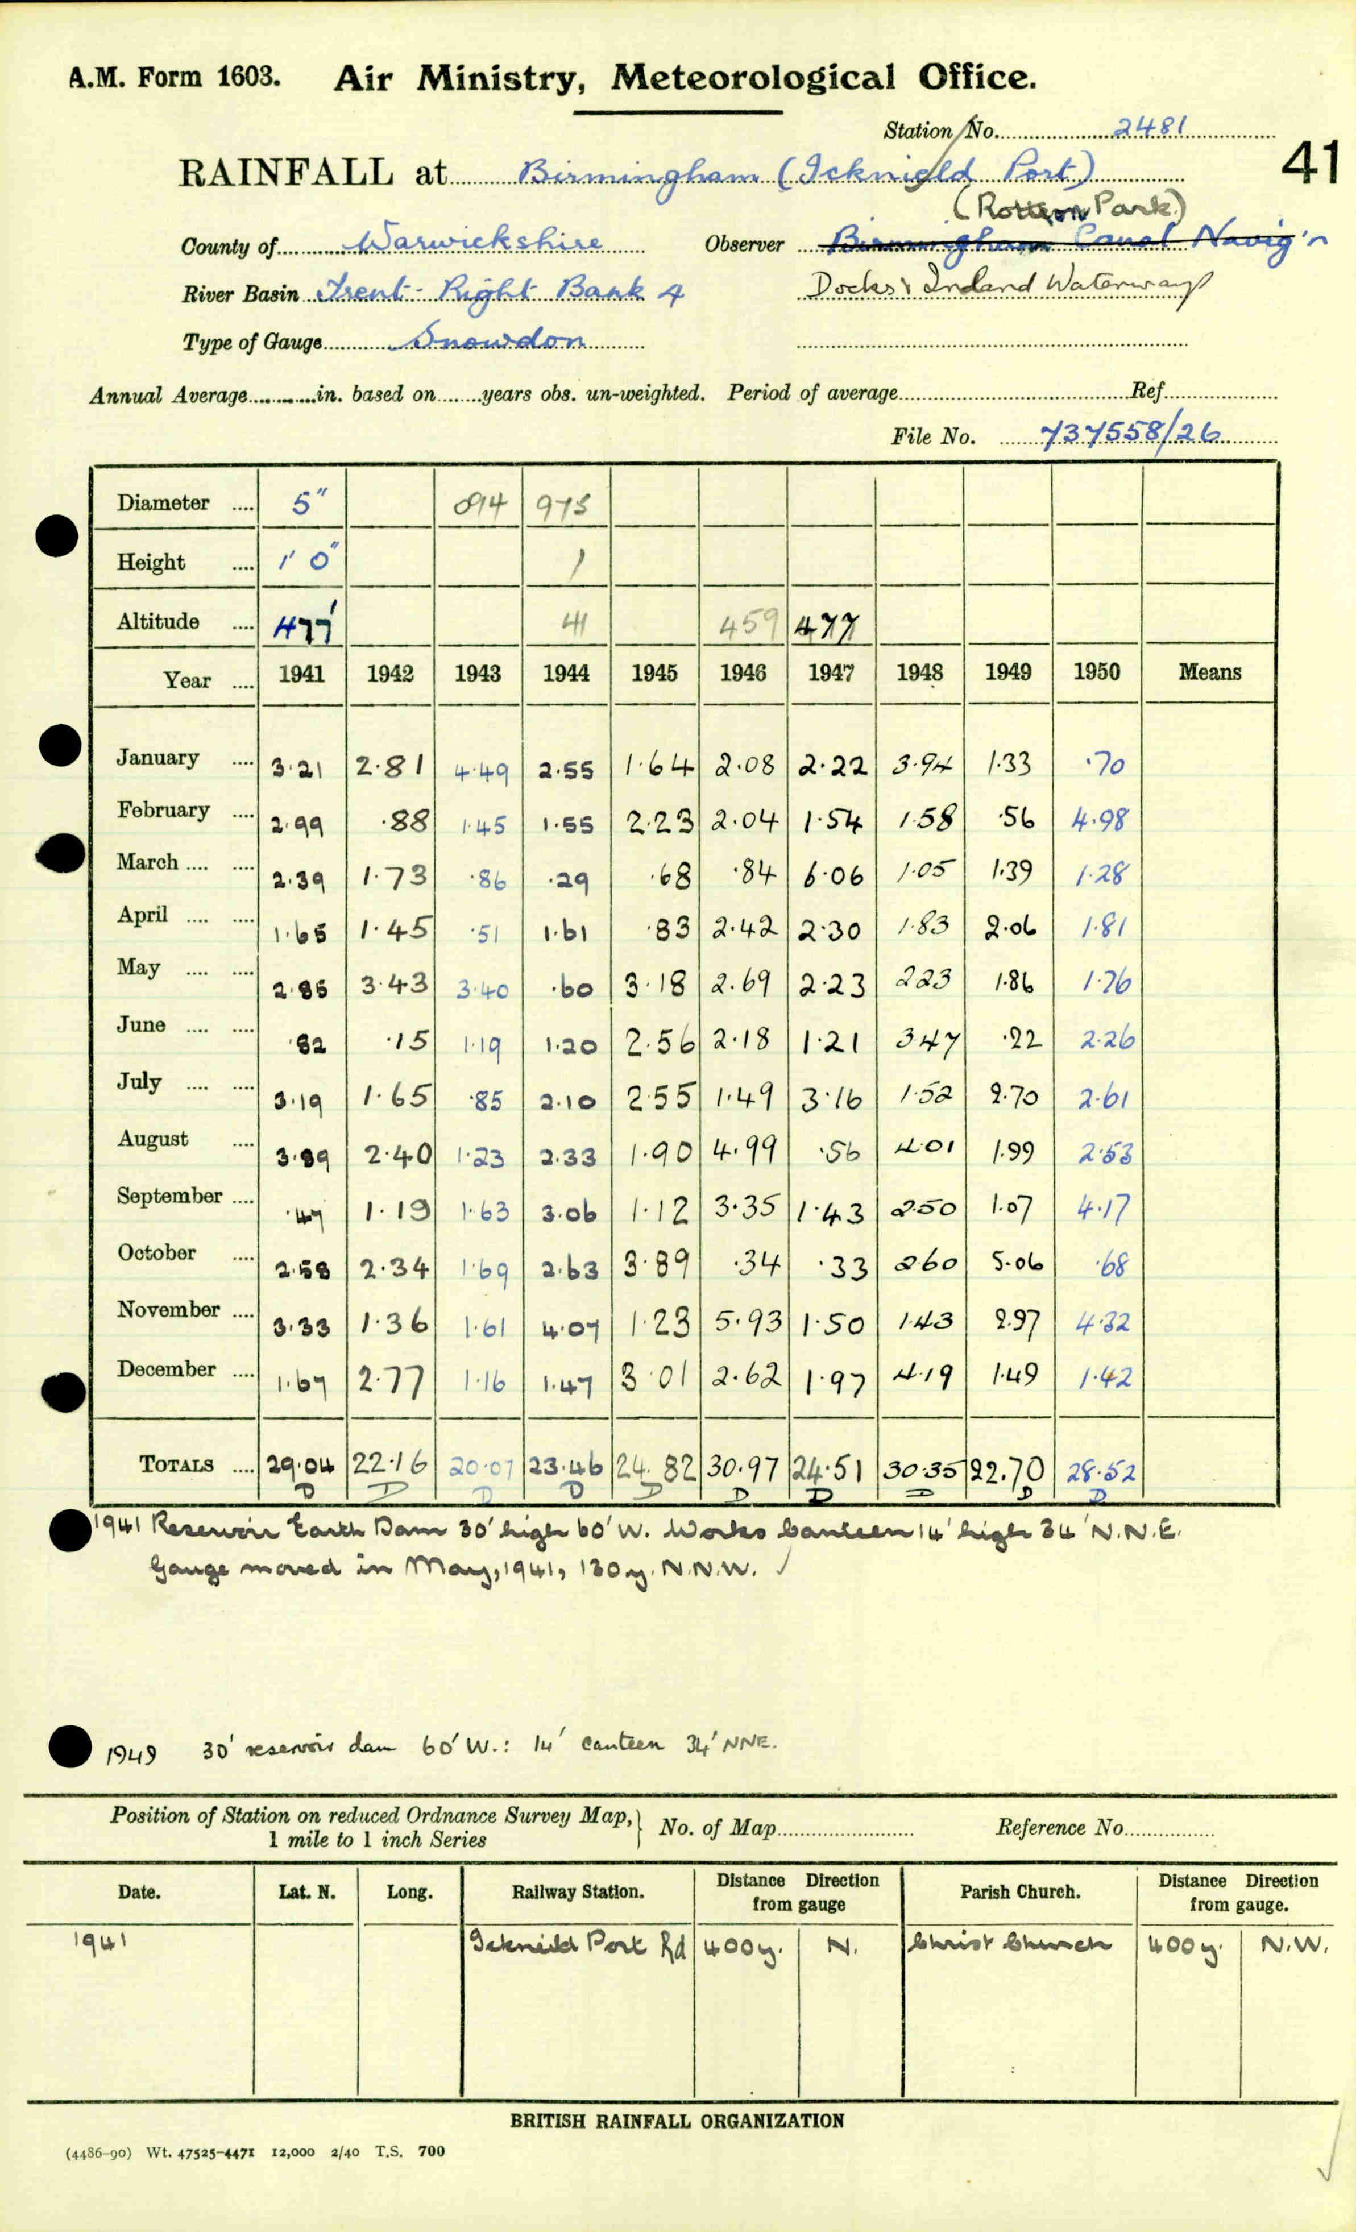 A.M. Form 1603. Air Ministry, Meteorological Office.
Station No. 2481
41
RAINFALL at Birmingham (Icknield Port)
(Rotton Park)
County of Warwickshire Observer Birmingham Canal Navig'n
River Basin Trent - Right Bank 4 Docks & Inland Waterways
Type of Gauge Snowdon
Annual Average in. based on years obs. un-weighted. Period of average Ref.
File No. 737558/26
Diameter 5" 094 975
Height 1' 0" 1
Altitude 477' 41 459 477
Year 1941 1942 1943 1944 1945 1946 1947 1948 1949 1950 Means
January 3.21 2.81 4.49 2.55 1.64 2.08 2.22 3.94 1.33 .70
February 2.99 .88 1.45 1.55 2.23 2.04 1.54 1.58 .56 4.98
March 2.39 1.73 .86 .29 .68 .84 6.06 1.05 1.39 1.28
April 1.65 1.45 .51 1.61 .83 2.42 2.30 1.83 2.06 1.81
May 2.85 3.43 3.40 .60 3.18 2.69 2.23 2.23 1.86 1.76
June .82 .15 1.19 1.20 2.56 2.18 1.21 3.47 .22 2.26
July 3.19 1.65 .85 2.10 2.55 1.49 3.16 1.52 2.70 2.61
August 3.89 2.40 1.23 2.33 1.90 4.99 .56 4.01 1.99 2.53
September .47 1.19 1.63 3.06 1.12 3.35 1.43 2.50 1.07 4.17
October 2.58 2.34 1.69 2.63 3.89 .34 .33 2.60 5.06 .68
November 3.33 1.36 1.61 4.07 1.23 5.93 1.50 1.43 2.97 4.32
December 1.67 2.77 1.16 1.47 3.01 2.62 1.97 4.19 1.49 1.42
TOTALS 29.04 22.16 20.07 23.46 24.82 30.97 24.51 30.35 22.70 28.52
D D D D D D D D D
1941 Reservoir Earth Dam 30' high 60' W. Works Canteen 14' high 34' N.N.E.
Gauge moved in May, 1941, 130y. N.N.W.
1949 30' reservoir dam 60' W.: 14' canteen 34' NNE.
Position of Station on reduced Ordnance Survey Map, No. of Map Reference No.
1 mile to 1 inch Series
Date. Lat. N. Long. Railway Station. Distance from gauge Direction Parish Church. Distance from gauge. Direction
1941 Icknield Port Rd 400y. N. Christ Church 400y. N.W.
BRITISH RAINFALL ORGANIZATION
(4486-90) Wt. 47525-4471 12,000 2/40 T.S. 700